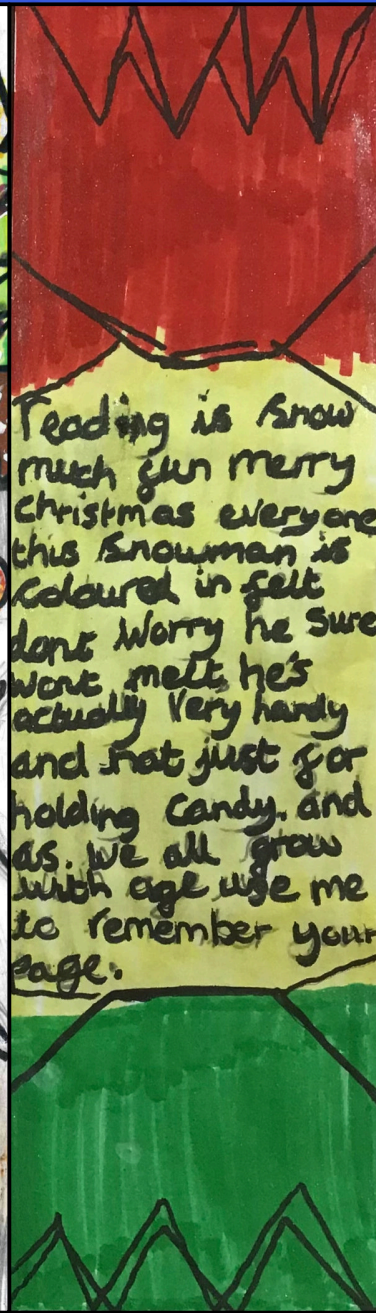 reading is snow
much fun merry
christmas everyone
this snowman is
coloured in felt
dont worry he sure
wont melt, he's
actually very handy
and not just for
holding candy. and
as. we all grow
with age use me
to remember your
page.